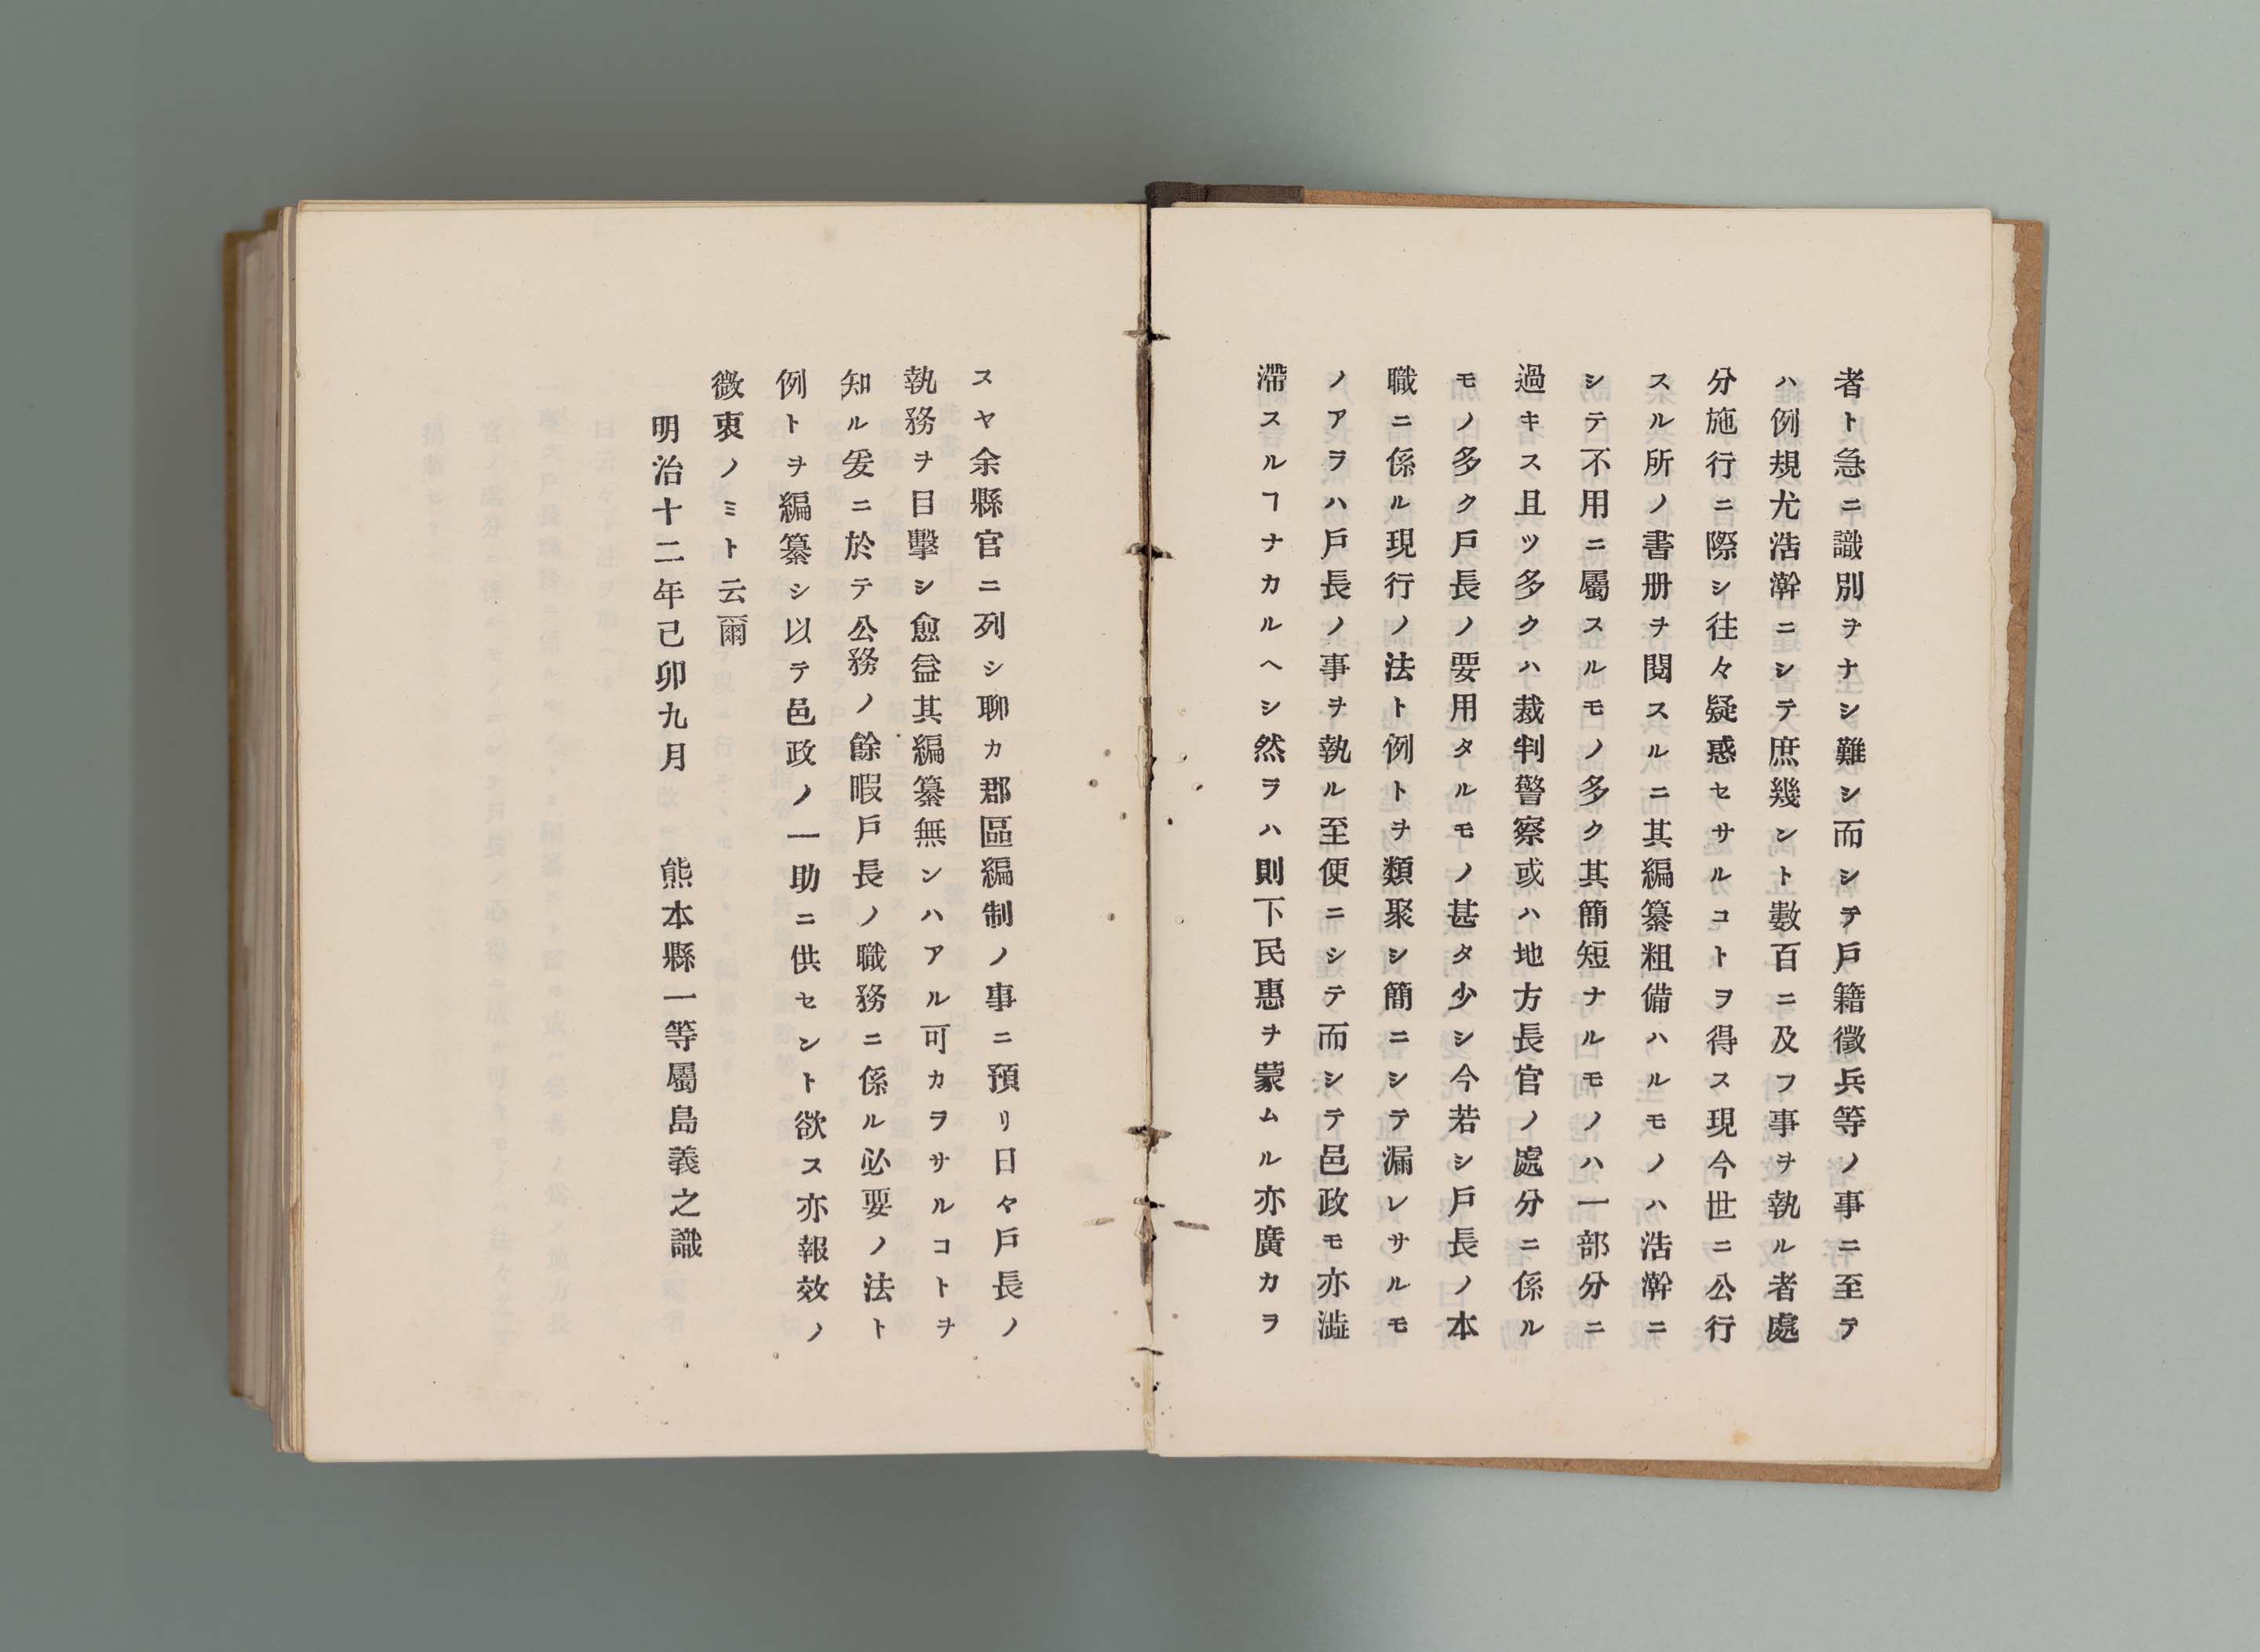 者ト急ニ識別ヲナシ難シ而シテ戸籍徵兵等ノ事ニ至テ
ハ例規尤浩澣ニシテ庶幾ント數百ニ及フ事ヲ執ル者處
分施行ニ際シ往々疑惑セサルコトヲ得ス現今世ニ公行
スル所ノ書册ヲ閱スルニ其編纂粗備ハルモノハ浩澣ニ
シテ不用ニ屬スルモノ多ク其簡短ナルモノハ一部分ニ
過キス且ツ多クハ裁判警察或ハ地方長官ノ處分ニ係ル
モノ多ク戸長ノ要用タルモノ甚タ少シ今若シ戸長ノ本
職ニ係ル現行ノ法ト例トヲ類聚シ簡ニシテ漏レサルモ
ノアラハ戸長ノ事ヲ執ル至便ニシテ而シテ邑政モ亦澁
滯スルヿナカルヘシ然ラハ則下民惠ヲ蒙ムル亦廣カラ
スヤ余縣官ニ列シ聊カ郡區編制ノ事ニ預リ日々戸長ノ
執務ヲ目擊シ愈益其編纂無ンハアル可カラサルコトヲ
知ル爰ニ於テ公務ノ餘暇戸長ノ職務ニ係ル必要ノ法ト
例トヲ編纂シ以テ邑政ノ一助ニ供セント欲ス亦報效ノ
微衷ノミト云爾
明治十二年己卯九月 熊本縣一等屬島義之識